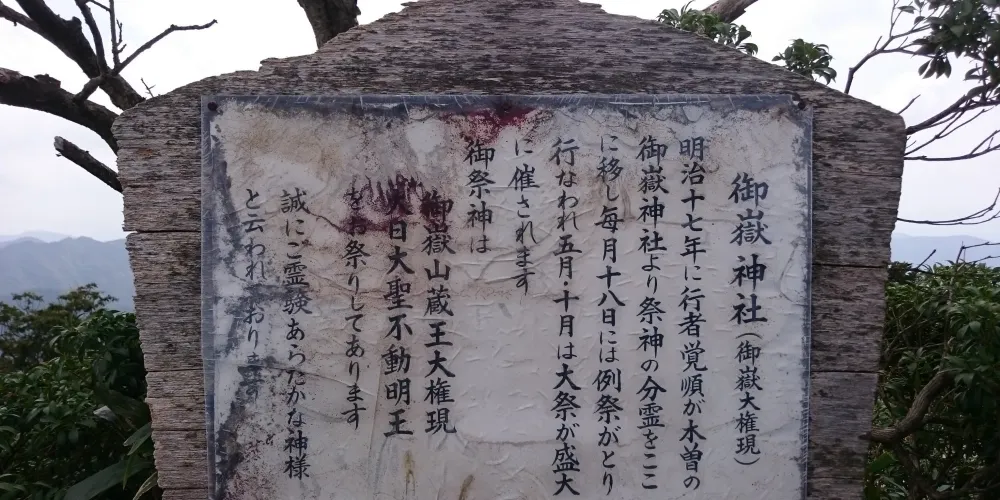 御嶽神社(御嶽大権現)
明治十七年に行者覚順が木曽の
御嶽神社より祭神の分霊をここ
に移し毎月十八日には例祭がとり
行なわれ五月・十月は大祭が盛大
に催されます
御祭神は
御嶽山蔵王大権現
大日大聖不動明王
をお祭りしてあります
誠にご霊験あらたかな神様
と云われおります